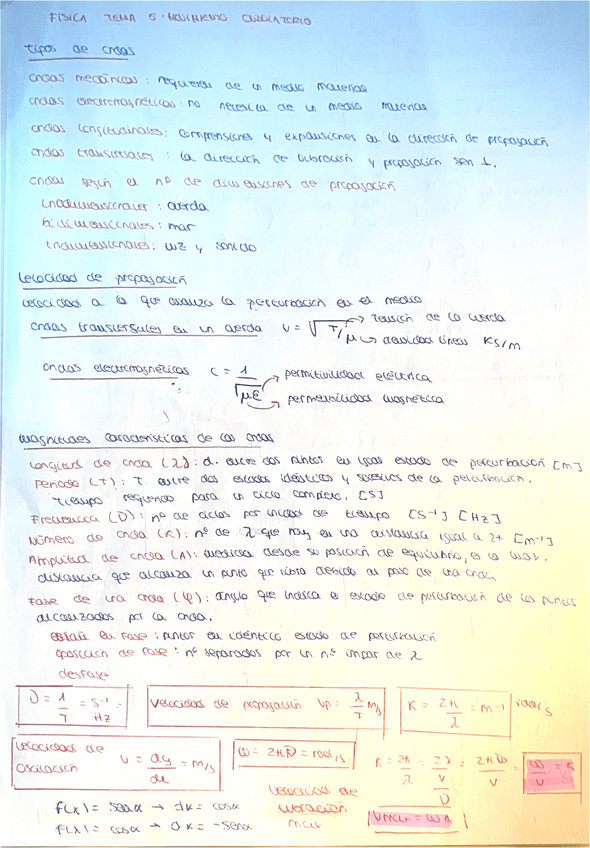 FÍSICA TEMA 6: MOVIMIENTO ONDULATORIO
tipos de ondas
ondas mecánicas: requieren de un medio material
ondas electromagnéticas: no necesita de un medio material
ondas longitudinales: compresiones y expansiones en la dirección de propagación
ondas transversales: la dirección de vibración y propagación son ⊥.
ondas según el nº de dimensiones de propagación
unidimensionales: cuerda
bidimensionales: mar
tridimensionales: luz y sonido
velocidad de propagación
velocidad a la que avanza la perturbación en el medio
ondas transversales en un cuerda v = √T/μ → Tensión de la cuerda
→ densidad lineal KS/m
ondas electromagnéticas c = 1/√με → permitividad eléctrica
→ permeabilidad magnética
magnitudes características de las ondas
longitud de onda (λ): d. entre dos puntos en igual estado de perturbación [m]
Periodo (T): T. entre dos estados idénticos y sucesivos de la perturbación.
Tiempo requerido para un ciclo completo. [S]
Frecuencia (ν): nº de ciclos por unidad de tiempo [S⁻¹] [Hz]
Número de onda (K): nº de λ que hay en una distancia igual a 2π [m⁻¹]
Amplitud de onda (A): medida desde su posición de equilibrio, es la max.
distancia que alcanza un punto que vibra debido al paso de una onda
Fase de una onda (φ): ángulo que indica el estado de perturbación de los puntos
alcanzados por la onda.
están en fase: puntos en idéntico estado de perturbación
oposición de fase: nº separados por un n.º impar de λ
desfase
ν = 1/T = s⁻¹ = Hz Velocidad de propagación Vp = λ/T m/s K = 2π/λ = m⁻¹ rad/s
velocidad de oscilación v = dy/dt = m/s ω = 2πν = rad/s K = 2π/λ = 2π/(v/ν) = 2πν/v = ω/v = K
velocidad de vibración max Vmax = ωA
f(x) = senα → dx = cosα
f(x) = cosα → dx = -senα